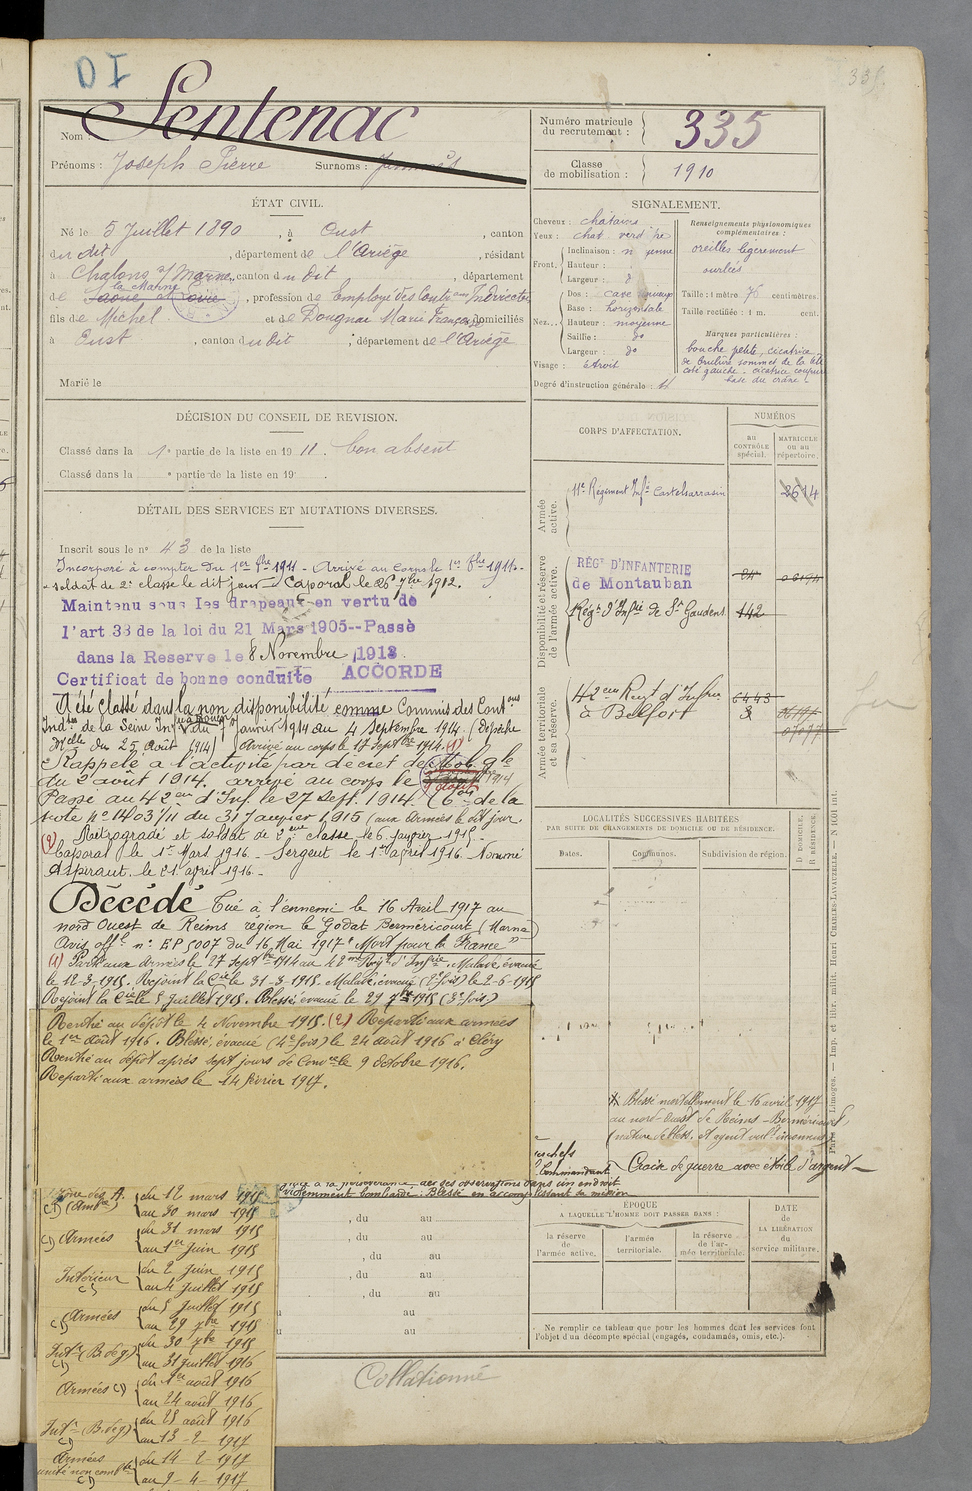 335.
DI
Nom Sentenac
Prénoms : Joseph Pierre Surnoms :
Numéro matricule
du recrutement : 335
Classe
de mobilisation : 1910
ÉTAT CIVIL.
Né le 5 Juillet 1890, à Eust, canton
du dit, département de l'Ariège, résidant
à Chalons s/ Marne, canton du dit, département
de la Marne Saone et Loire, profession de Employé des Contions Indirectes
fils de Michel et de Dougnac Marie Françoise domiciliés
à Eust, canton du dit, département de l'Ariège
Marié le
SIGNALEMENT.
Cheveux : chatains
Yeux : chat. verd
Front. Inclinaison : moyenne
Hauteur :
Largeur : do
Nez. Dos : cave
Base : horizontale
Hauteur : moyenne
Saillie : do
Largeur : do
Visage : étroit
Degré d'instruction générale :
Renseignements physionomiques
complémentaires :
oreilles légèrement
ourlées
Taille : 1 mètre 76 centimètres.
Taille rectifiée : 1 m. cent.
Marques particulières :
bouche petite, cicatrice
de brulure sommet de la tête
coté gauche - cicatrice coupure
base du crâne -
DÉCISION DU CONSEIL DE REVISION.
Classé dans la 1e partie de la liste en 1911. bon absent
Classé dans la e partie de la liste en 19
CORPS D'AFFECTATION.
NUMÉROS
au
CONTRÔLE
spécial.
MATRICULE
ou au
répertoire.
Armée
active.
11e Régiment Infie Castelsarrasin 2614
Disponibilité et réserve
de l'armée active.
RÉGt D'INFANTERIE
de Montauban
Régt d'Infie de St Gaudens 142
Armée territoriale
et sa réserve.
42eme Regt d'Infrie 6443
à Belfort
DÉTAIL DES SERVICES ET MUTATIONS DIVERSES.
Inscrit sous le no 43 de la liste
Incorporé à compter du 1er 8bre 1911 - Arrivé au corps le 1er 8bre 1911 -
soldat de 2e classe le dit jour. Caporal le 26 7bre 1912.
Maintenu sous les drapeaux en vertu de
l'art 33 de la loi du 21 Mars 1905--Passé
dans la Reserve le 8 Novembre 1913
Certificat de bonne conduite ACCORDÉ
A été classé dans la non disponibilité comme Commis des Contons
Indtes de la Seine Infre du 7 Janvier 1914 au 4 Septembre 1914. (Dépêche
Mlle du 25 Août 1914) Arrivé au corps le 17 Septbre 1914. (1)
Rappelé à l'activité par décret de Mob. gle
du 2 août 1914. arrivé au corps le 1914
Passé au 42eme d'Inf. le 27 Sept. 1914. (6on de la
note no 1403/11 du 31 Janvier 1915 (aux Armées le dit jour.
(2) Rétrogradé et soldat de 2eme classe le 6 Janvier 1915
Caporal le 1er Mars 1916 - Sergent le 1er avril 1916. Nommé
Aspirant. le 21 avril 1916.-
Décédé Tué à l'ennemi le 16 Avril 1917 au
nord Ouest de Reims région le Godat Berméricourt (Marne)
Avis offel no EP 5007 du 16 Mai 1917 "Mort pour la France"
(1) Parti aux armées le 27 Septbre 1914 au 42me Regt d'Infrie. Malade, évacué
le 12-3-1915. Rejoint la Cie le 31-3-1915. Malade, évacué (2e fois) le 2-6-1915
Rejoint la Cie le 5 Juillet 1915. Blessé évacué le 29 7bre 1915 (3e fois)
Rentré au dépôt le 4 Novembre 1915. (2) Reparti aux armées
le 1er Août 1916. Blessé, évacué (4e fois) le 24 août 1916 à Cléry
Rentré au dépôt après sept jours de Convce le 9 Octobre 1916.
Reparti aux armées le 14 février 1917.
LOCALITÉS SUCCESSIVES HABITÉES
PAR SUITE DE CHANGEMENTS DE DOMICILE OU DE RÉSIDENCE.
Dates. Communes. Subdivision de région.
D. DOMICILE,
R. RÉSIDENCE.
Blessé mortellement le 16 avril 1917
au nord-ouest de Reims - Berméricourt,
(nature de bless. et agent vult inconnus)
Croix de guerre avec étoile d'argent
des observations dans un endroit
bombardé. Blessé en accomplissant sa mission
Zone des A. du 12 mars 1915
au 30 mars 1915
Armées du 31 mars 1915
au 1er Juin 1915
Intérieur du 2 Juin 1915
au 4 Juillet 1915
Armées du 5 Juillet 1915
au 29 7bre 1915
Intr (B. de g) du 30 7bre 1915
au 31 Juillet 1916
Armées du 1er août 1916
au 24 août 1916
Intr (B. de g) du 25 août 1916
au 13 - 2 - 1917
Armées du 14 - 2 - 1917
unité non combtte au 9 - 4 - 1917
, du au
, du au
, du au
, du au
, du au
au
au
ÉPOQUE
A LAQUELLE L'HOMME DOIT PASSER DANS :
la réserve
de
l'armée active.
l'armée
territoriale.
la réserve
de l'ar-
mée territoriale.
DATE
de
LA LIBÉRATION
du
service militaire.
Ne remplir ce tableau que pour les hommes dont les services font
l'objet d'un décompte spécial (engagés, condamnés, omis, etc.).
Collationné
Paris et Limoges. — Imp. et libr. milit. Henri CHARLES-LAVAUZELLE. — N 1601 int.